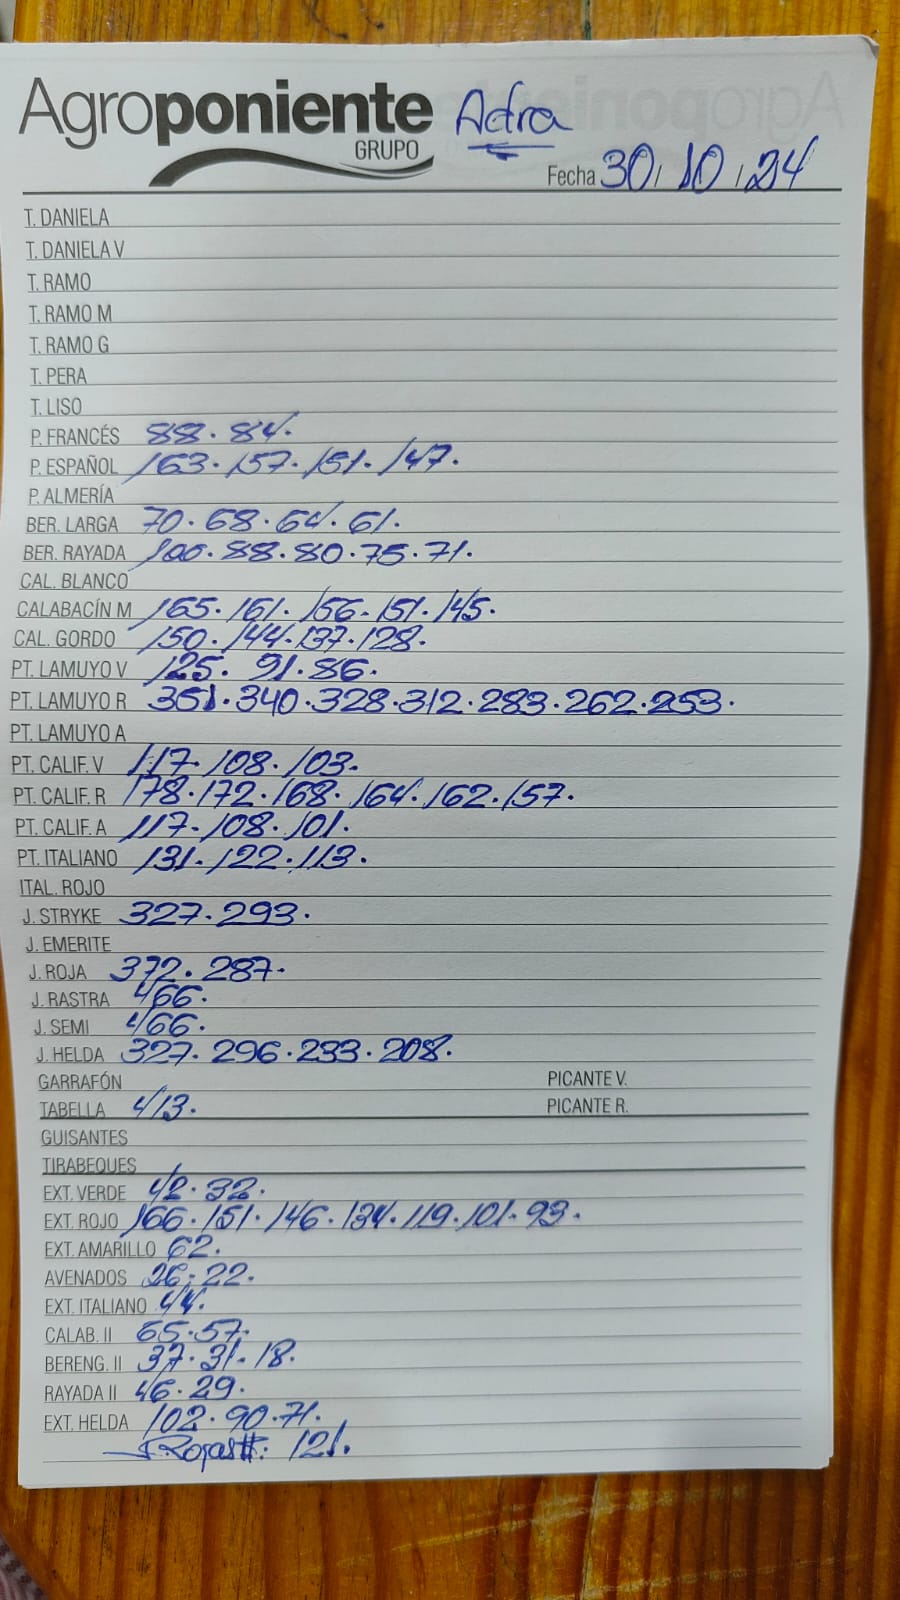 Agroponiente Adra
GRUPO
Fecha 30/10/24
T. DANIELA
T. DANIELA V
T. RAMO
T. RAMO M
T. RAMO G
T. PERA
T. LISO
P. FRANCÉS 88.84.
P. ESPAÑOL 163.157.151.147.
P. ALMERÍA
BER. LARGA 70.68.64.61.
BER. RAYADA 100.88.80.75.71.
CAL. BLANCO
CALABACÍN M 165.161.156.151.145.
CAL. GORDO 150.144.137.128.
PT. LAMUYO V 125.91.86.
PT. LAMUYO R 351.340.328.312.283.262.253.
PT. LAMUYO A
PT. CALIF. V 117.108.103.
PT. CALIF. R 178.172.168.164.162.157.
PT. CALIF. A 117.108.101.
PT. ITALIANO 131.122.113.
ITAL. ROJO
J. STRYKE 327.293.
J. EMERITE
J. ROJA 372.287.
J. RASTRA 466.
J. SEMI 466.
J. HELDA 327.296.233.208.
GARRAFÓN PICANTE V.
TABELLA 413. PICANTE R.
GUISANTES
TIRABEQUES
EXT. VERDE 42.32.
EXT. ROJO 166.151.146.134.119.101.93.
EXT. AMARILLO 62.
AVENADOS 26.22.
EXT. ITALIANO 44.
CALAB. II 65.57.
BERENG. II 37.31.18.
RAYADA II 46.29.
EXT. HELDA 102.90.71.
J. Rojas II: 121.